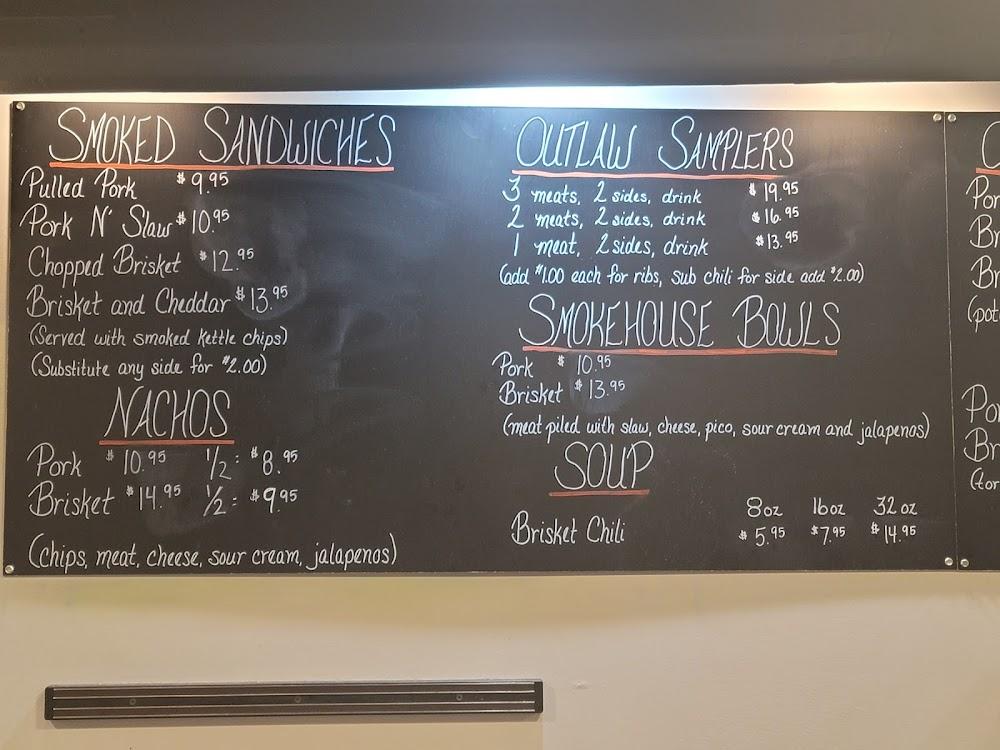 SMOKED SANDWICHES
Pulled Pork $9.95
Pork N' Slaw $10.95
Chopped Brisket $12.95
Brisket and Cheddar $13.95
(Served with smoked kettle chips)
(Substitute any side for $2.00)
NACHOS
Pork $10.95 1/2: $8.95
Brisket $14.95 1/2: $9.95
(chips, meat, cheese, sour cream, jalapenos)
OUTLAW SAMPLERS
3 meats, 2 sides, drink $19.95
2 meats, 2 sides, drink $16.95
1 meat, 2 sides, drink $13.95
(add $1.00 each for ribs, sub chili for side add $2.00)
SMOKEHOUSE BOWLS
Pork $10.95
Brisket $13.95
(meat piled with slaw, cheese, pico, sour cream and jalapenos)
SOUP
8oz 16oz 32oz
Brisket Chili $5.95 $7.95 $14.95